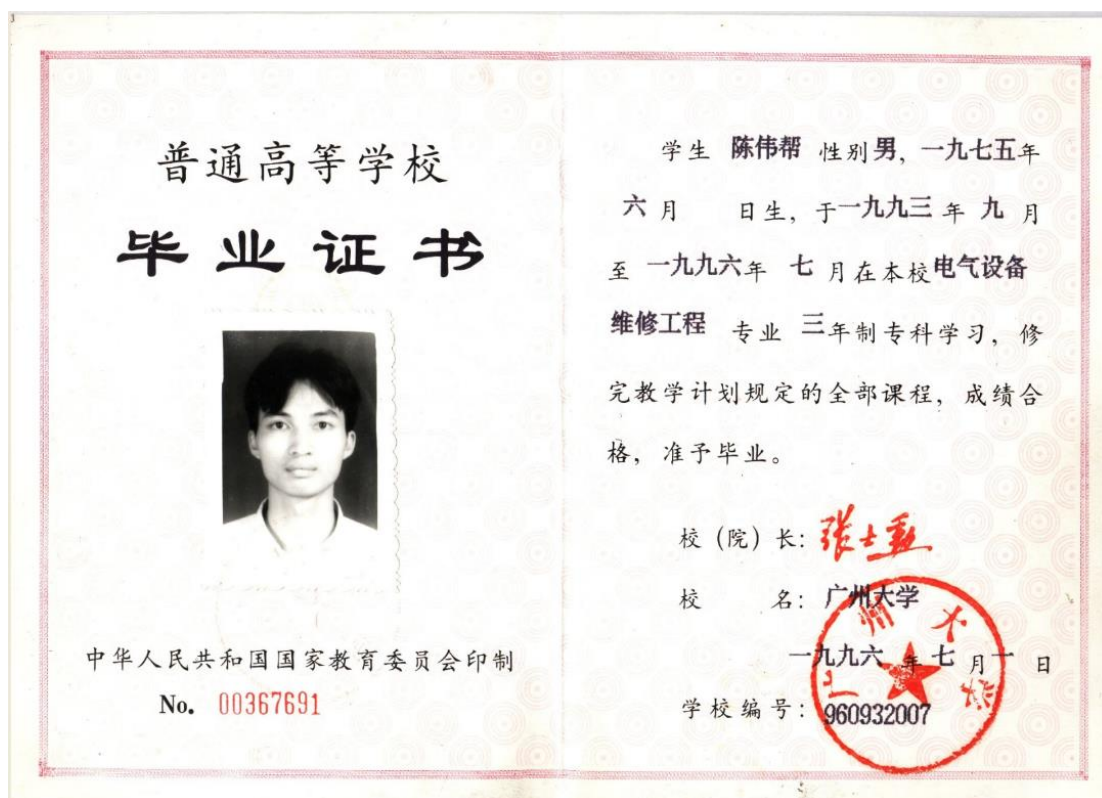 普通高等学校
毕业证书
中华人民共和国国家教育委员会印制
No. 00367691
学生 陈伟帮 性别男, 一九七五年
六月 日生, 于一九九三年 九 月
至 一九九六年 七 月在本校电气设备
维修工程 专业 三年制专科学习, 修
完教学计划规定的全部课程, 成绩合
格, 准予毕业。
校 (院) 长: 张士勤
校 名: 广州大学
广州大学
一九九六 年 七 月 一 日
学校编号: 960932007